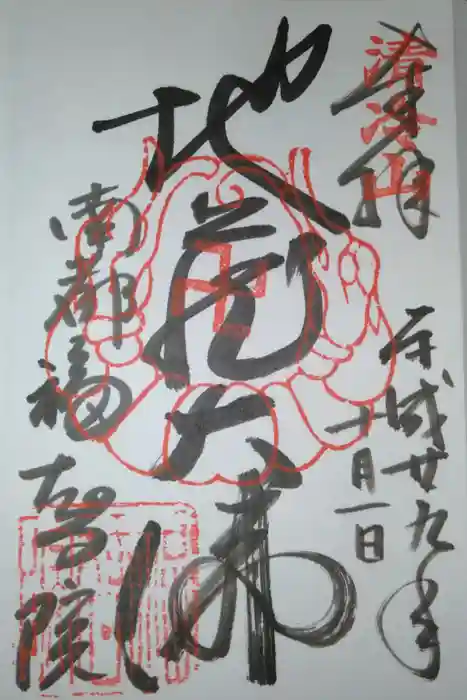 奉拝
清浄山
平成廿九年
十月一日
地蔵大佛
南都福智院